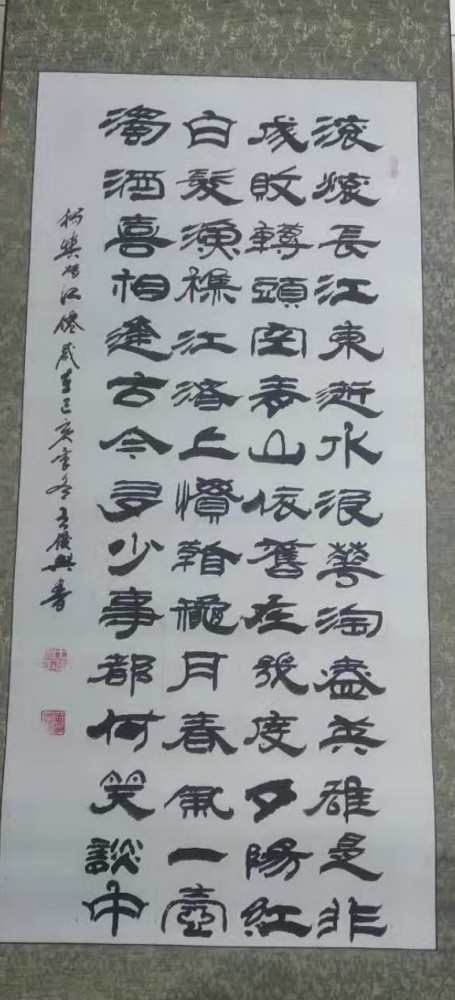 滚滚長江東逝水浪華淘盡英雄是非
成敗轉頭空青山依舊在幾度夕陽紅
白髮漁樵江渚上慣看穐月春風一壺
濁酒喜相逢古今多少事都付笑談中
楊慎臨江僊歲在己亥季冬俊興書